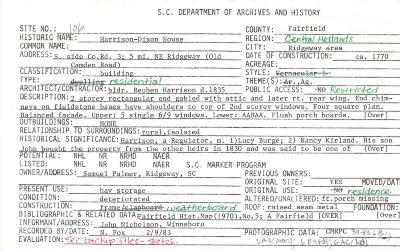 S.C. DEPARTMENT OF ARCHIVES AND HISTORY
SITE NO.: 106 COUNTY: Fairfield
HISTORIC NAME: Harrison-Dixon House REGION: Central Midlands
COMMON NAME: CITY: Ridgeway area
ADDRESS: s. side Co.Rd. 3; 5 mi. NE Ridgeway (Old Camden Road) DATE OF CONSTRUCTION: ca. 1770
ACREAGE:
CLASSIFICATION: building STYLE: Vernacular
TYPE: dwelling residential THEME(S):
ARCHITECT/CONTRACTOR: bldr. Reuben Harrison d.1835 PUBLIC ACCESS: NO Restricted
DESCRIPTION: 2 storey rectangular end gabled with attic and later rt. rear wing. End chim-
neys on fieldstone bases have shoulders to top of 2nd storey windows. Four square plan.
Balanced facade. Upper: 5 single 6/9 windows. Lower: AABAA. Flush porch boards. [Over]
OUTBUILDINGS: NONE
RELATIONSHIP TO SURROUNDINGS: rural, isolated
HISTORICAL SIGNIFICANCE: Harrison, a Regulator, m. 1)Lucy Burge; 2) Nancy Kirland. His son
John bought the property from the other heirs in 1830 and was said to be one of [Over]
POTENTIAL: NHL NR NRHD NAER
LISTED: NHL NR NRHD NAER S.C. MARKER PROGRAM
OWNER/ADDRESS: Samuel Palmer, Ridgeway, SC PREVIOUS OWNERS:
ORIGINAL SITE: YES MOVED/DAT
PRESENT USE: hay storage ORIGINAL USE: residence
CONDITION: deteriorated ALTERED/UNALTERED: ft. porch missing
CONSTRUCTION: frame/clapboard weatherboard ROOF: raised seam metal FOUNDATION:
BIBLIOGRAPHIC & RELATED DATA: Fairfield Hist.Map(1970),No.5; A Fairfield [Over]
INFORMANT/ADDRESS: John Nicholson, Winnsboro
RECORDED BY/DATE: N. Fox 2/9/83 PHOTOGRAPHIC DATA: CMRPC
EVALUATION: See backup files - sketch.